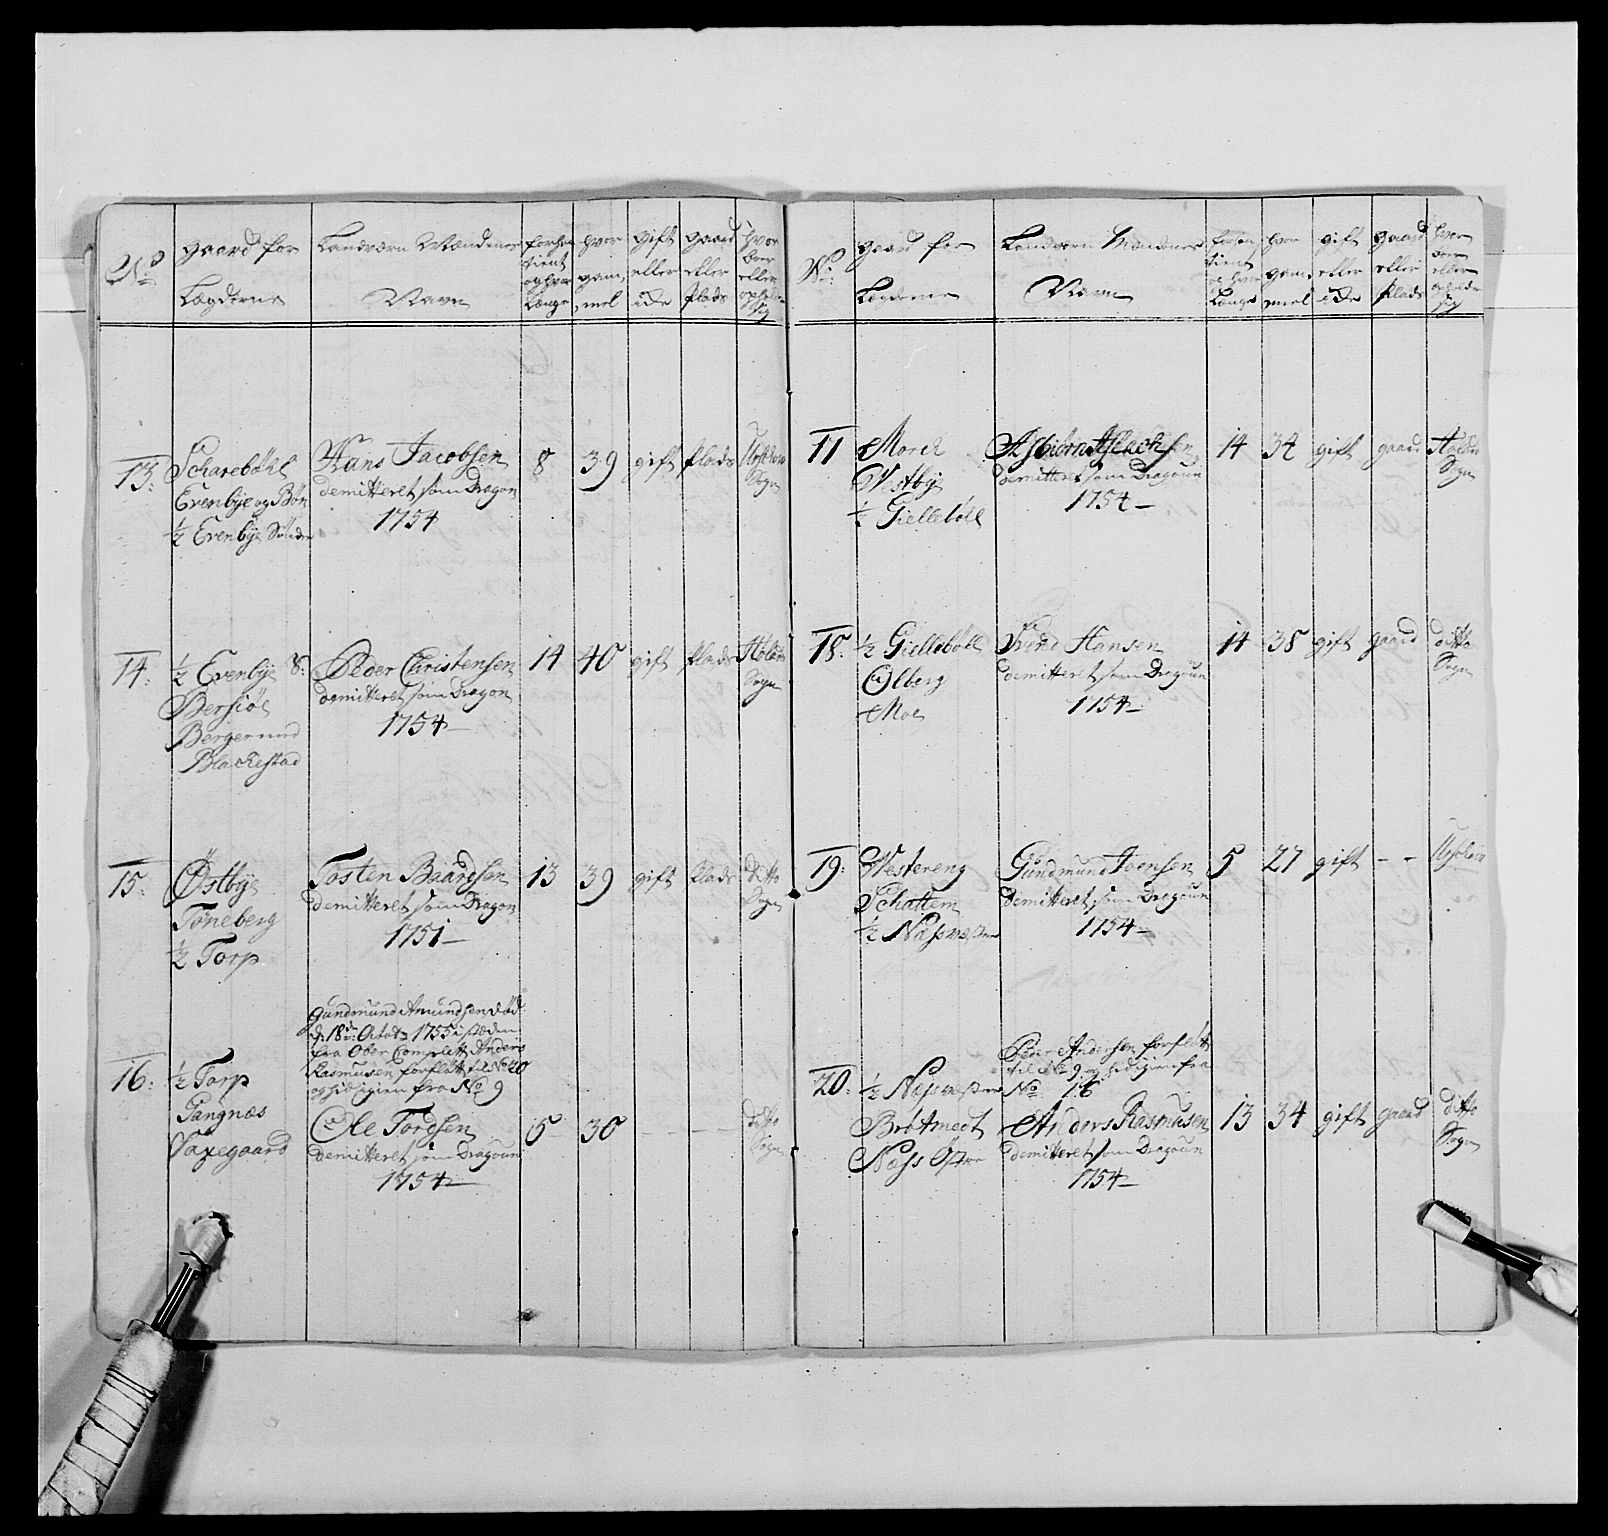 No
gaard for
Lægderne
Landværn Mændenes
Navn
forhen
tient
og hvor
Længe
hvor
gam,
mel
gift
eller
ide
gaard
eller
Plads
hvor
boer
eller
ophol-
sig
13:
Scharebøhl
Evenbye og Bøn
½ Evenbye Søndre
Hans Jacobsen
demitteret som Dragon
1754
8
39
gift
Plads
Sogn
14:
½ Evenbye S:
Bersiøe
Bergerund
Blachestad
Peder Christensen
demitteret som Dragon
1754
14
40
gift
Plads
Høland
Sogn
15:
Østbye
Toneberg
½ Torp
Tosten Baardsen
demitteret som Dragon
1751
13
39
gift
Plads
ditto
Sogn
16:
½ Torp
Tangnæs
Saxegaard
Gundmund Amundsen død
d. 18de Octobr 1755 i stæden
fra Ober Complett Anders
Rasmusen forfløt til No 20
og hidigien fra No 9
Ole Tordsen
demitteret som Dragoun
1754
5
30
ditto
Sogn
No:
gaard for
Lægderne
Landværn Mændenes
Navn
forhen
tient
og hvor
Længe
hvor
gam,
mel
gift
eller
ide
gaard
eller
Plads
hvor
boer
eller
opholde
sig
17
Morch
Westbye
½ Giellebøll
Asbiørn Aslachsen
demitteret som Dragoun
1754
14
34
gift
gaard
Høland
Sogn
18:
½ Giellebøll
Olberg
Moe
Svend Hansen
demitteret som Dragoun
1754
14
38
gift
gaard
ditto
Sogn
19:
Westereng
Schattem
½ Næss væstre
Gundmund Joensen
demitteret som Dragoun
1754
5
27
gift
20:
½ Næss væstre
Bråtmedt
Næss Østre
Peder Andersen forfløt
til No 9 og hidigien fra
No 16
Anders Rasmusen
demitteret som Dragoun
1754
13
34
gift
gaard
ditto
Sogn